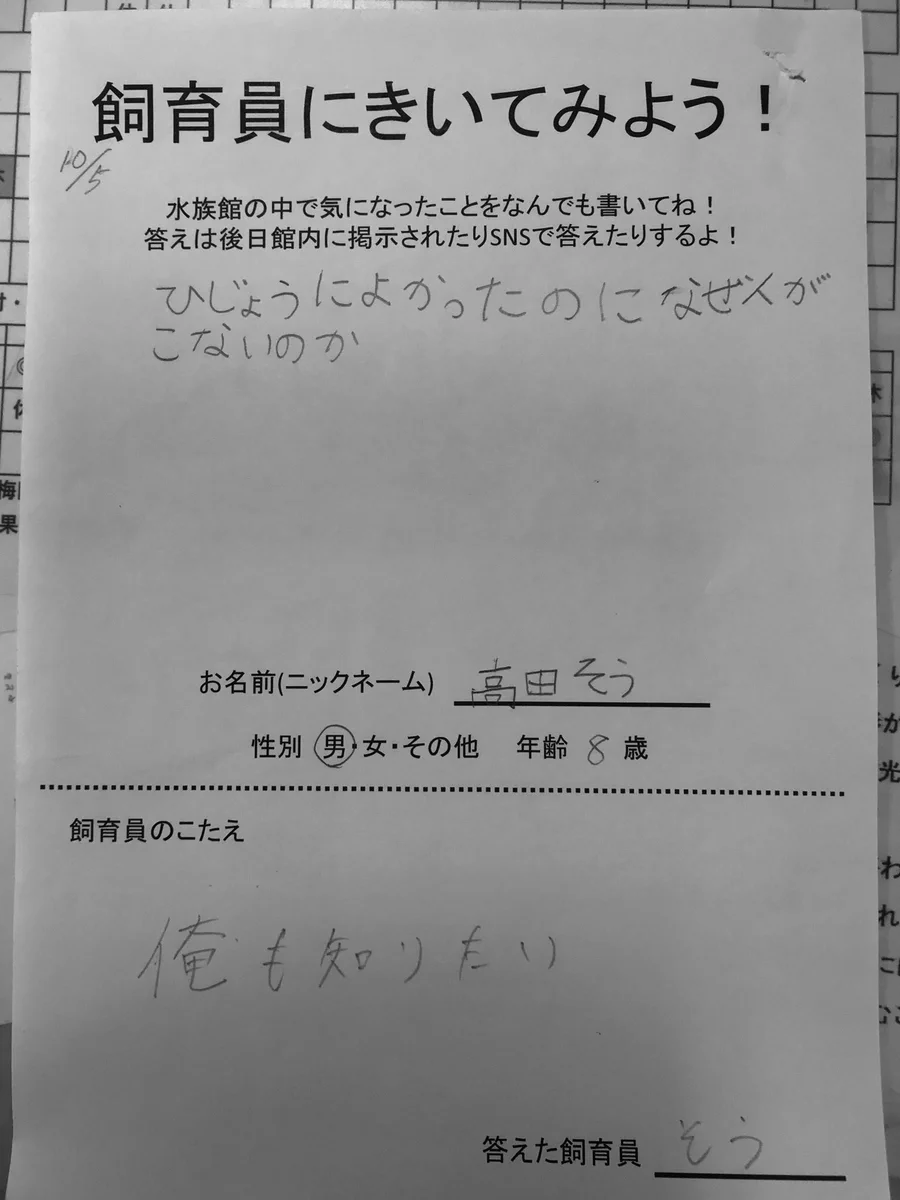 飼育員にきいてみよう！
10/5
水族館の中で気になったことをなんでも書いてね！
答えは後日館内に掲示されたりSNSで答えたりするよ！
ひじょうによかったのになぜ人が
こないのか
お名前(ニックネーム) 高田そう
性別 男・女・その他 年齢 8 歳
飼育員のこたえ
俺も知りたい
答えた飼育員 そう